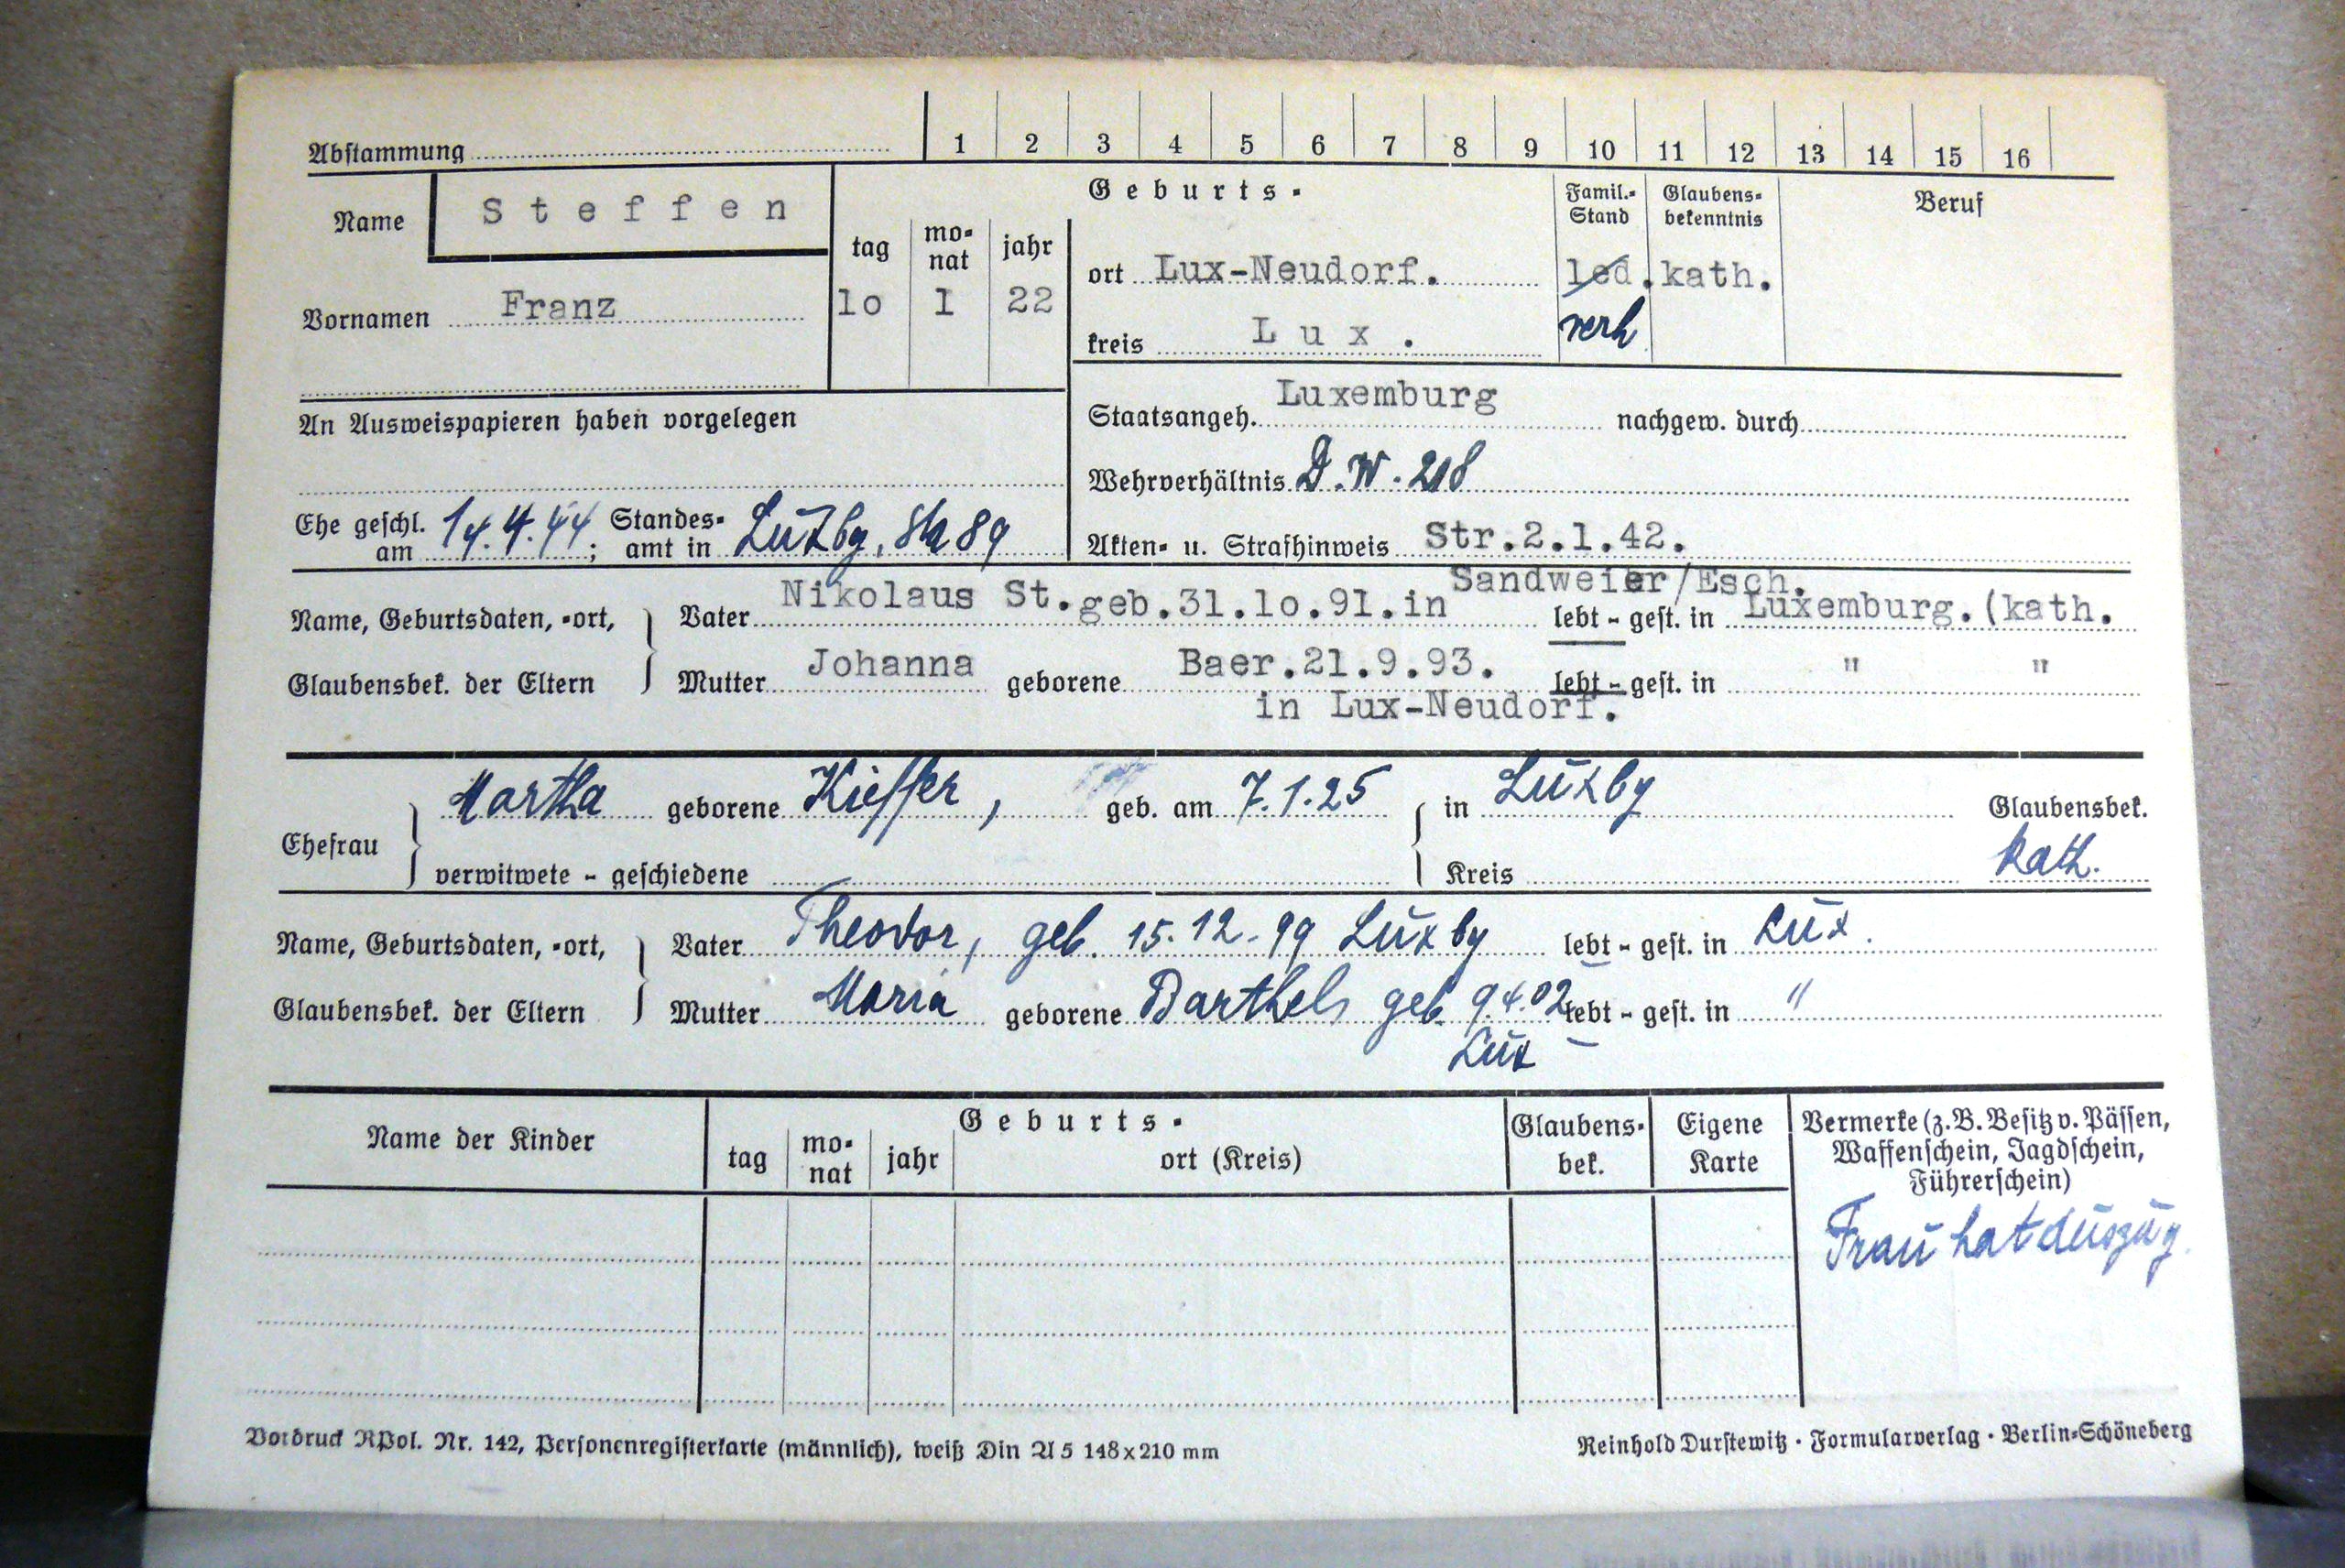 Abstammung 1 2 3 4 5 6 7 8 9 10 11 12 13 14 15 16
Name Steffen
Geburts-
Famil.-Stand Glaubens-bekenntnis Beruf
tag mo-nat jahr
ort Lux-Neudorf. led. kath.
Vornamen Franz 1o 1 22
kreis Lux. verh
An Ausweispapieren haben vorgelegen
Staatsangeh. Luxemburg nachgew. durch
Wehrverhältnis D.W. 218
Ehe geschl. am 14.4.44; Standes-amt in Luxbg, 89
Akten- u. Strafhinweis Str.2.1.42.
Name, Geburtsdaten, -ort, Vater Nikolaus St.geb.31.1o.91.in Sandweier/Esch. lebt - gest. in Luxemburg.(kath.
Glaubensbek. der Eltern Mutter Johanna geborene Baer.21.9.93. lebt - gest. in " "
in Lux-Neudorf.
Martha geborene Kieffer, geb. am 7.1.25 in Luxbg Glaubensbek.
Ehefrau
verwitwete - geschiedene Kreis kath.
Name, Geburtsdaten, -ort, Vater Theodor, geb. 15.12.99 Luxbg lebt - gest. in Lux.
Glaubensbek. der Eltern Mutter Maria geborene Barthels geb. 9.4.02 lebt - gest. in "
Lux
Name der Kinder
Geburts-
tag mo-nat jahr ort (Kreis)
Glaubens-bek.
Eigene Karte
Vermerke (z.B. Besitz v. Pässen,
Waffenschein, Jagdschein,
Führerschein)
Frau hat
Vordruck RPol. Nr. 142, Personenregisterkarte (männlich), weiß Din A 5 148x210 mm
Reinhold Durstewitz · Formularverlag · Berlin-Schöneberg